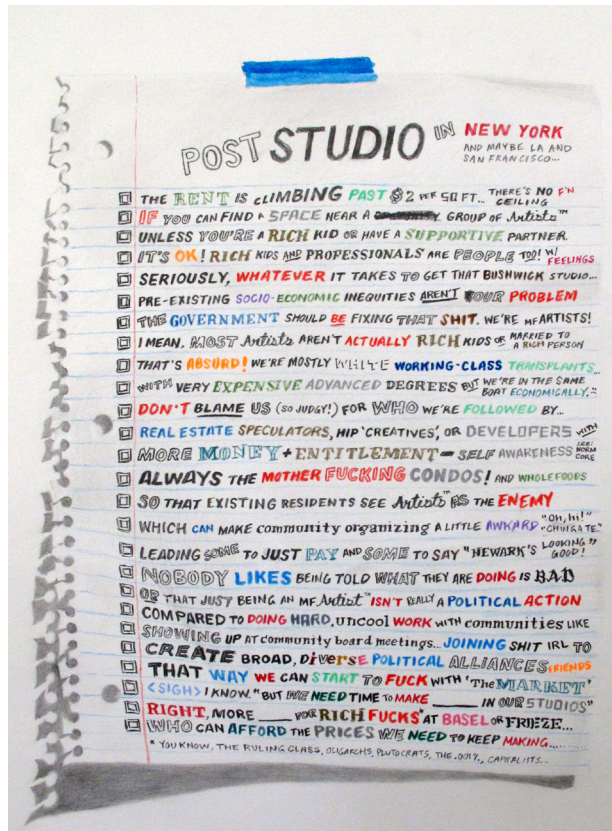 POST STUDIO IN NEW YORK
AND MAYBE LA AND
SAN FRANCISCO...
THE RENT IS CLIMBING PAST $2 PER SQ FT... THERE'S NO F'N CEILING
IF YOU CAN FIND A SPACE NEAR A GROUP OF Artists™
UNLESS YOU'RE A RICH KID OR HAVE A SUPPORTIVE PARTNER.
IT'S OK! RICH KIDS AND PROFESSIONALS ARE PEOPLE TOO! W/ FEELINGS
SERIOUSLY, WHATEVER IT TAKES TO GET THAT BUSHWICK STUDIO...
PRE-EXISTING SOCIO-ECONOMIC INEQUITIES AREN'T YOUR PROBLEM
THE GOVERNMENT SHOULD BE FIXING THAT SHIT. WE'RE MF ARTISTS!
I MEAN, MOST Artists AREN'T ACTUALLY RICH KIDS OR MARRIED TO A RICH PERSON
THAT'S ABSURD! WE'RE MOSTLY WHITE WORKING-CLASS TRANSPLANTS...
WITH VERY EXPENSIVE ADVANCED DEGREES BUT WE'RE IN THE SAME BOAT ECONOMICALLY."
DON'T BLAME US (SO JUDGY!) FOR WHO WE'RE FOLLOWED BY...
REAL ESTATE SPECULATORS, HIP 'CREATIVES', OR DEVELOPERS WITH
MORE MONEY + ENTITLEMENT - SELF AWARENESS SEE: NORM CORE
ALWAYS THE MOTHER FUCKING CONDOS! AND WHOLEFOODS
SO THAT EXISTING RESIDENTS SEE Artists™ AS THE ENEMY
WHICH CAN MAKE community organizing A LITTLE AWKARD "Oh, hi!" "CHINGATE"
LEADING SOME TO JUST PAY AND SOME TO SAY "NEWARK'S LOOKING GOOD!"
NOBODY LIKES BEING TOLD WHAT THEY ARE DOING IS BAD
OR THAT JUST BEING AN MF Artist™ ISN'T REALLY A POLITICAL ACTION
COMPARED TO DOING HARD, uncool WORK WITH communities LIKE
SHOWING UP AT community board meetings... JOINING SHIT IRL TO
CREATE BROAD, Diverse POLITICAL ALLIANCES FRIENDS
THAT WAY WE CAN START TO FUCK WITH 'The MARKET'
<SIGH> I KNOW. "BUT WE NEED TIME TO MAKE _____ IN OUR STUDIOS"
RIGHT, MORE ____ FOR RICH FUCKS* AT BASEL OR FRIEZE...
WHO CAN AFFORD THE PRICES WE NEED TO KEEP MAKING.....
* YOU KNOW, THE RULING CLASS, OLIGARCHS, PLUTOCRATS, THE .001%, CAPITALISTS...